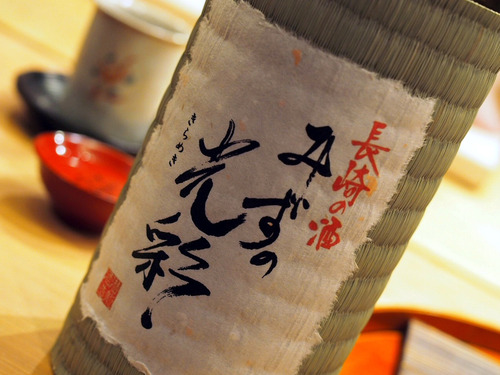 長崎の酒
みずの
光彩
きらめき